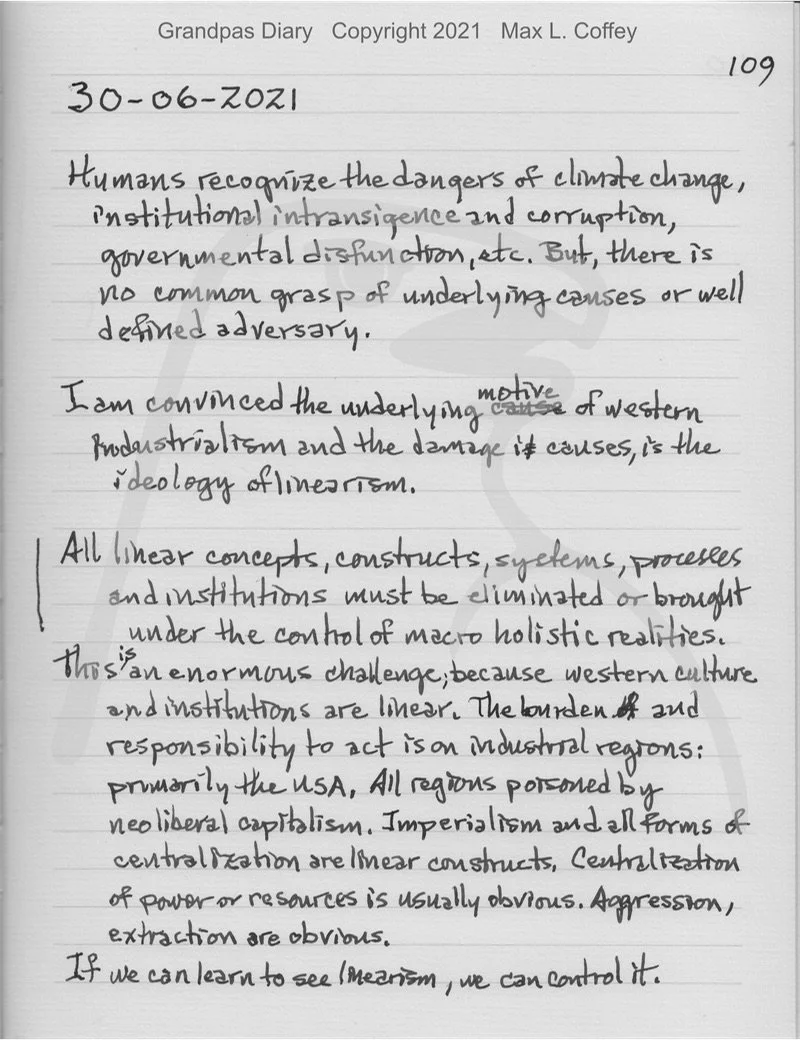 Grandpas Diary Copyright 2021 Max L. Coffey
109
30-06-2021
Humans recognize the dangers of climate change,
institutional intransigence and corruption,
governmental disfunction, etc. But, there is
no common grasp of underlying causes or well
defined adversary.
I am convinced the underlying motive cause of western
Industrialism and the damage it causes, is the
ideology of linearism.
All linear concepts, constructs, systems, processes
and institutions must be eliminated or brought
under the control of macro holistic realities.
This is an enormous challenge; because western culture
and institutions are linear. The burden and
responsibility to act is on industrial regions:
primarily the USA, All regions poisoned by
neoliberal capitalism. Imperialism and all forms of
centralization are linear constructs. Centralization
of power or resources is usually obvious. Aggression,
extraction are obvious.
If we can learn to see linearism, we can control it.